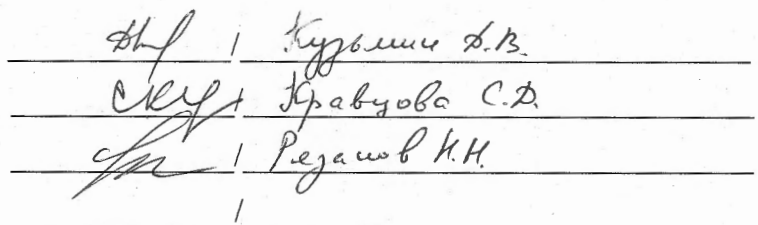 / Кузьмин Д.В.
/ Кравцова С.Д.
/ Рязанов Н.Н.
/